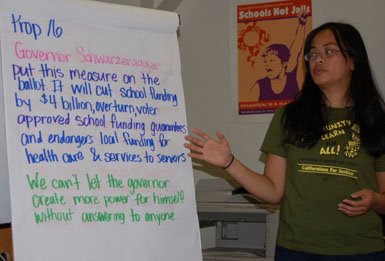 Prop 76
Governor Schwarzenegger
put this measure on the
ballot. It will cut school funding
by $4 billion, overturn voter
approved school funding guarantees
and endangers local funding for
health care & services to seniors.
We can't let the governor
create more power for himself
without answering to anyone.
Schools Not Jails
EDUCATION IS A
LEARN
ALL!
Californians For Justice